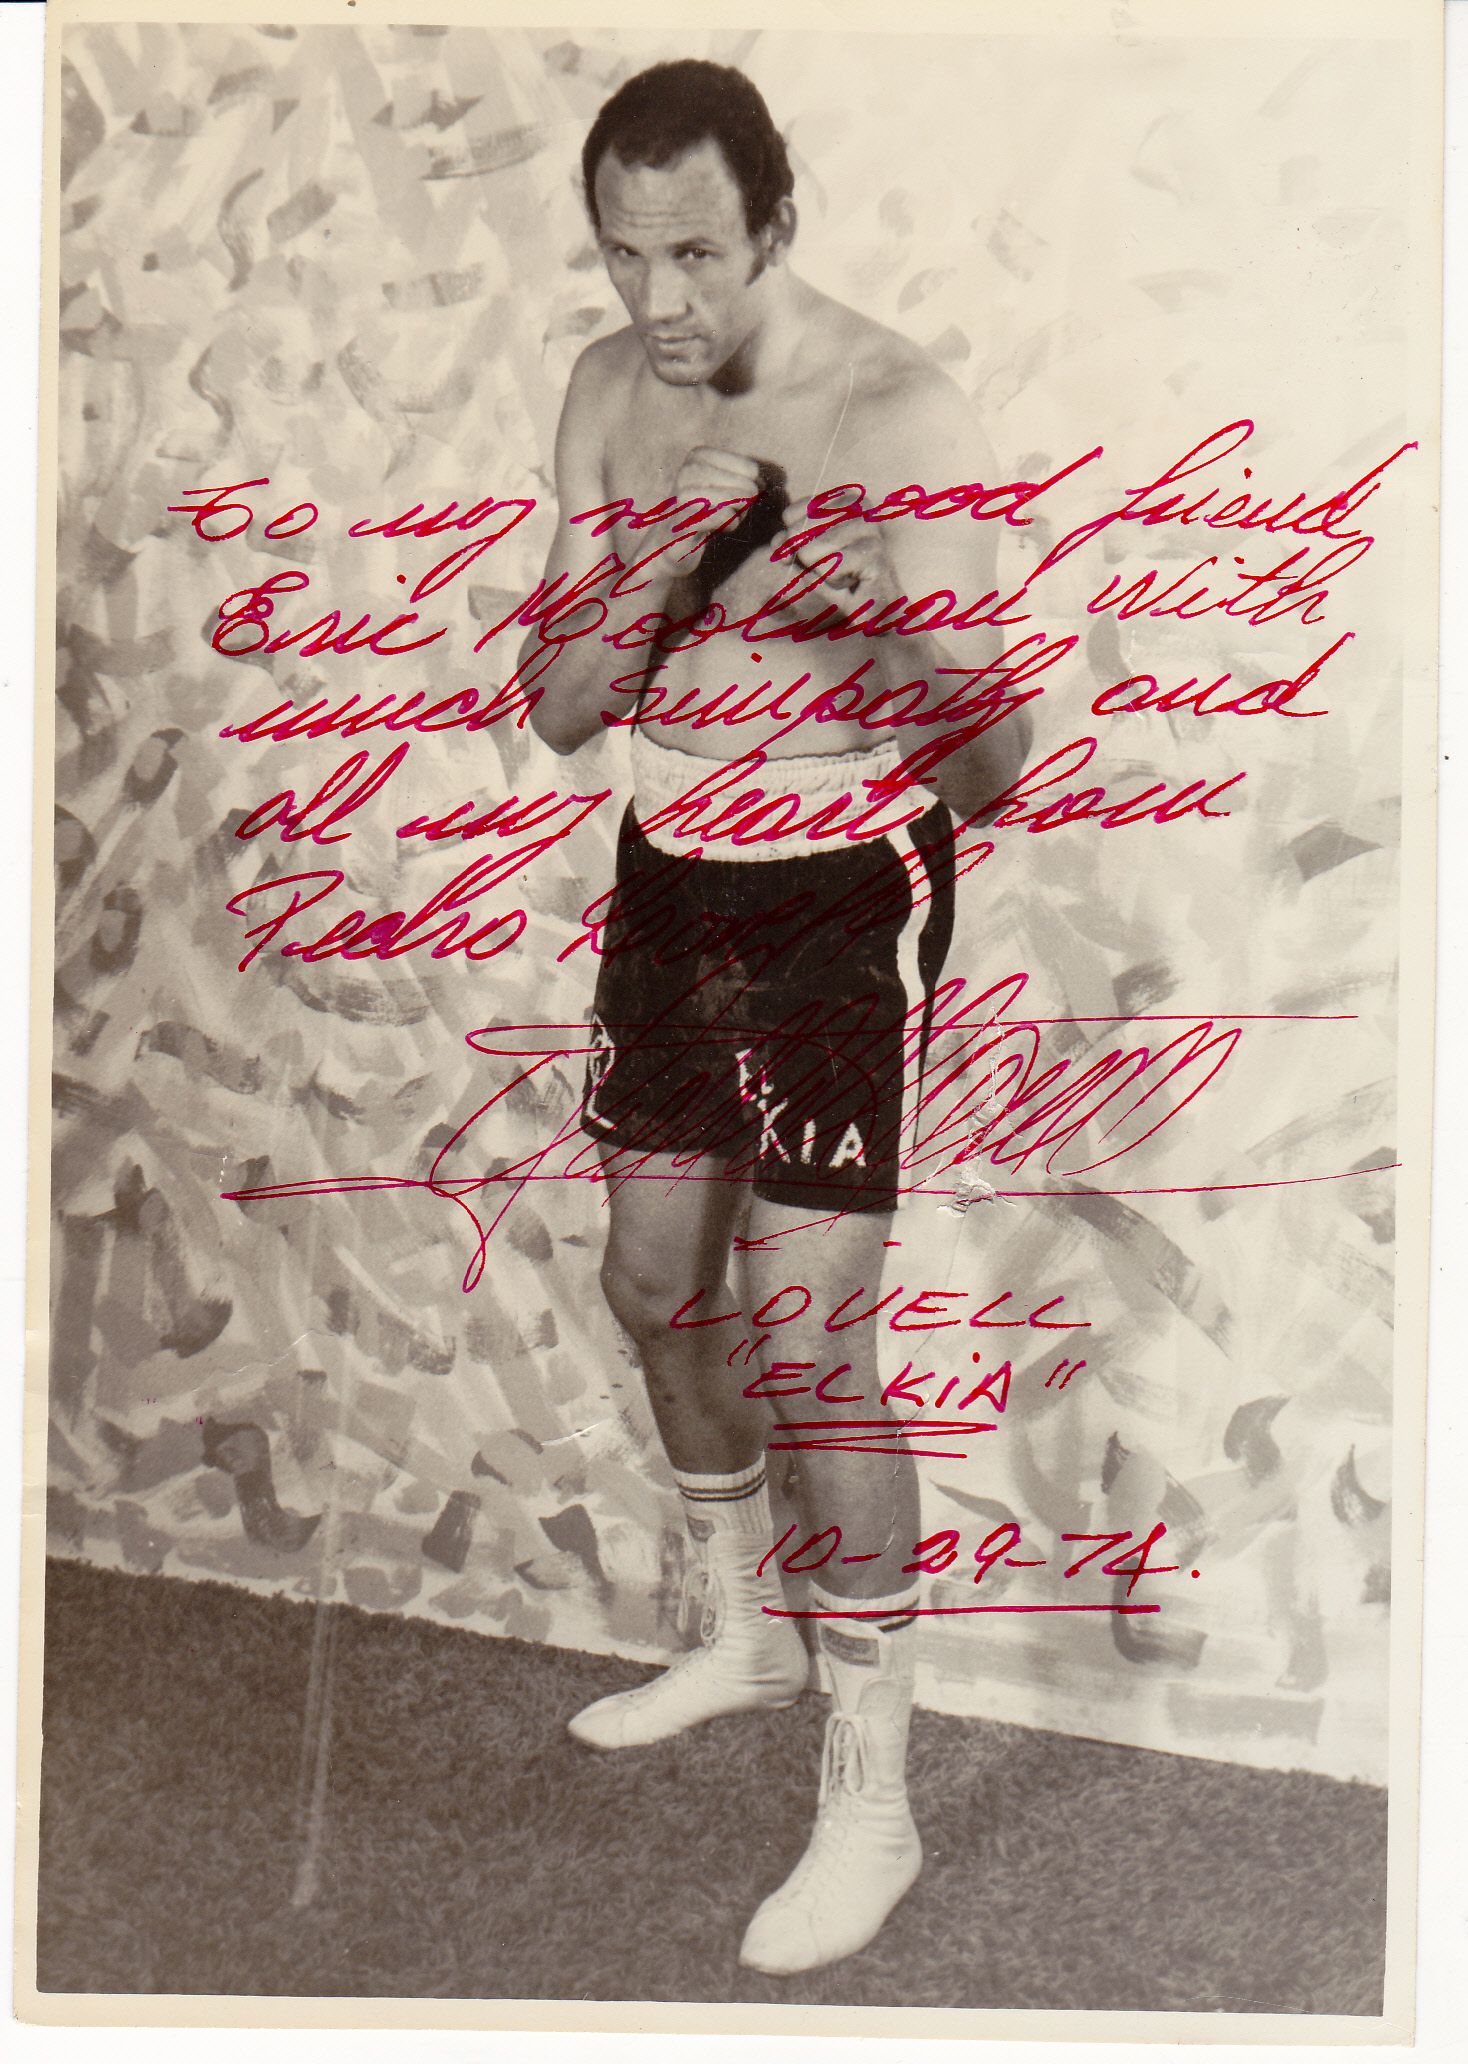 To my very good friend
Eric Woolman with
much simpathy and
all my heart from
Pedro Lovell
LOVELL
"ELKIA"
10-29-74.
KIA